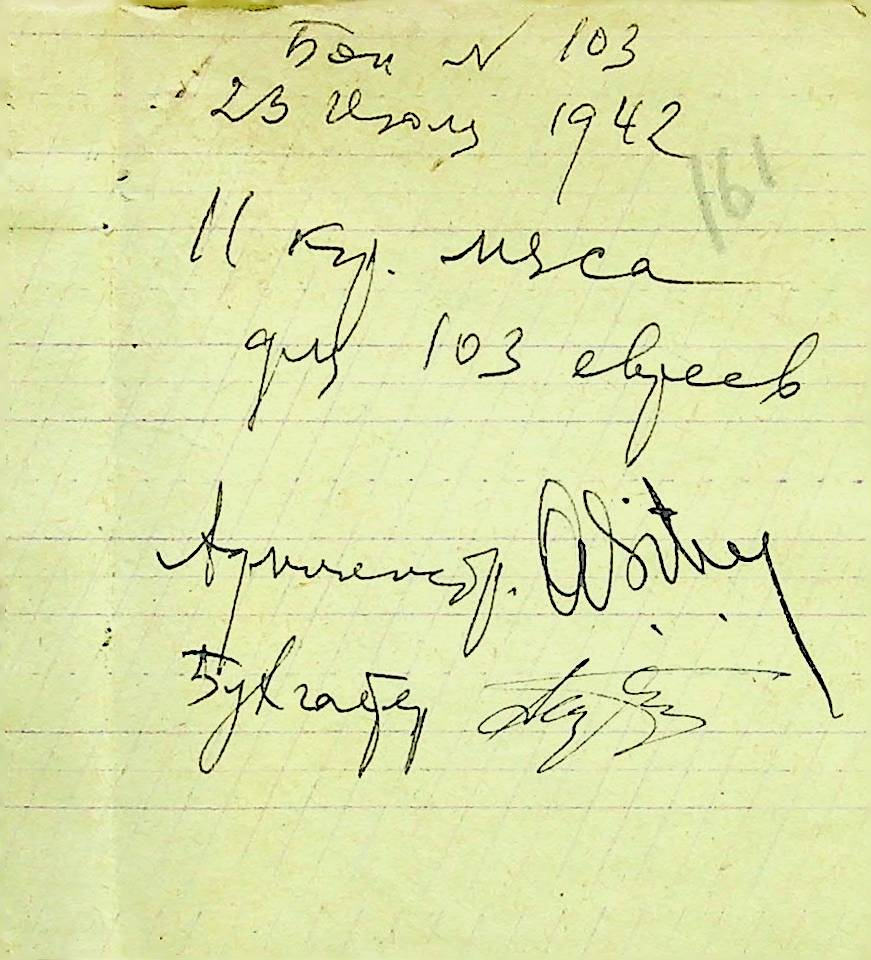 Бон N 103
23 Июля 1942
161
11 кгр. мяса
для 103 евреев
Администр.
Бухгалтер